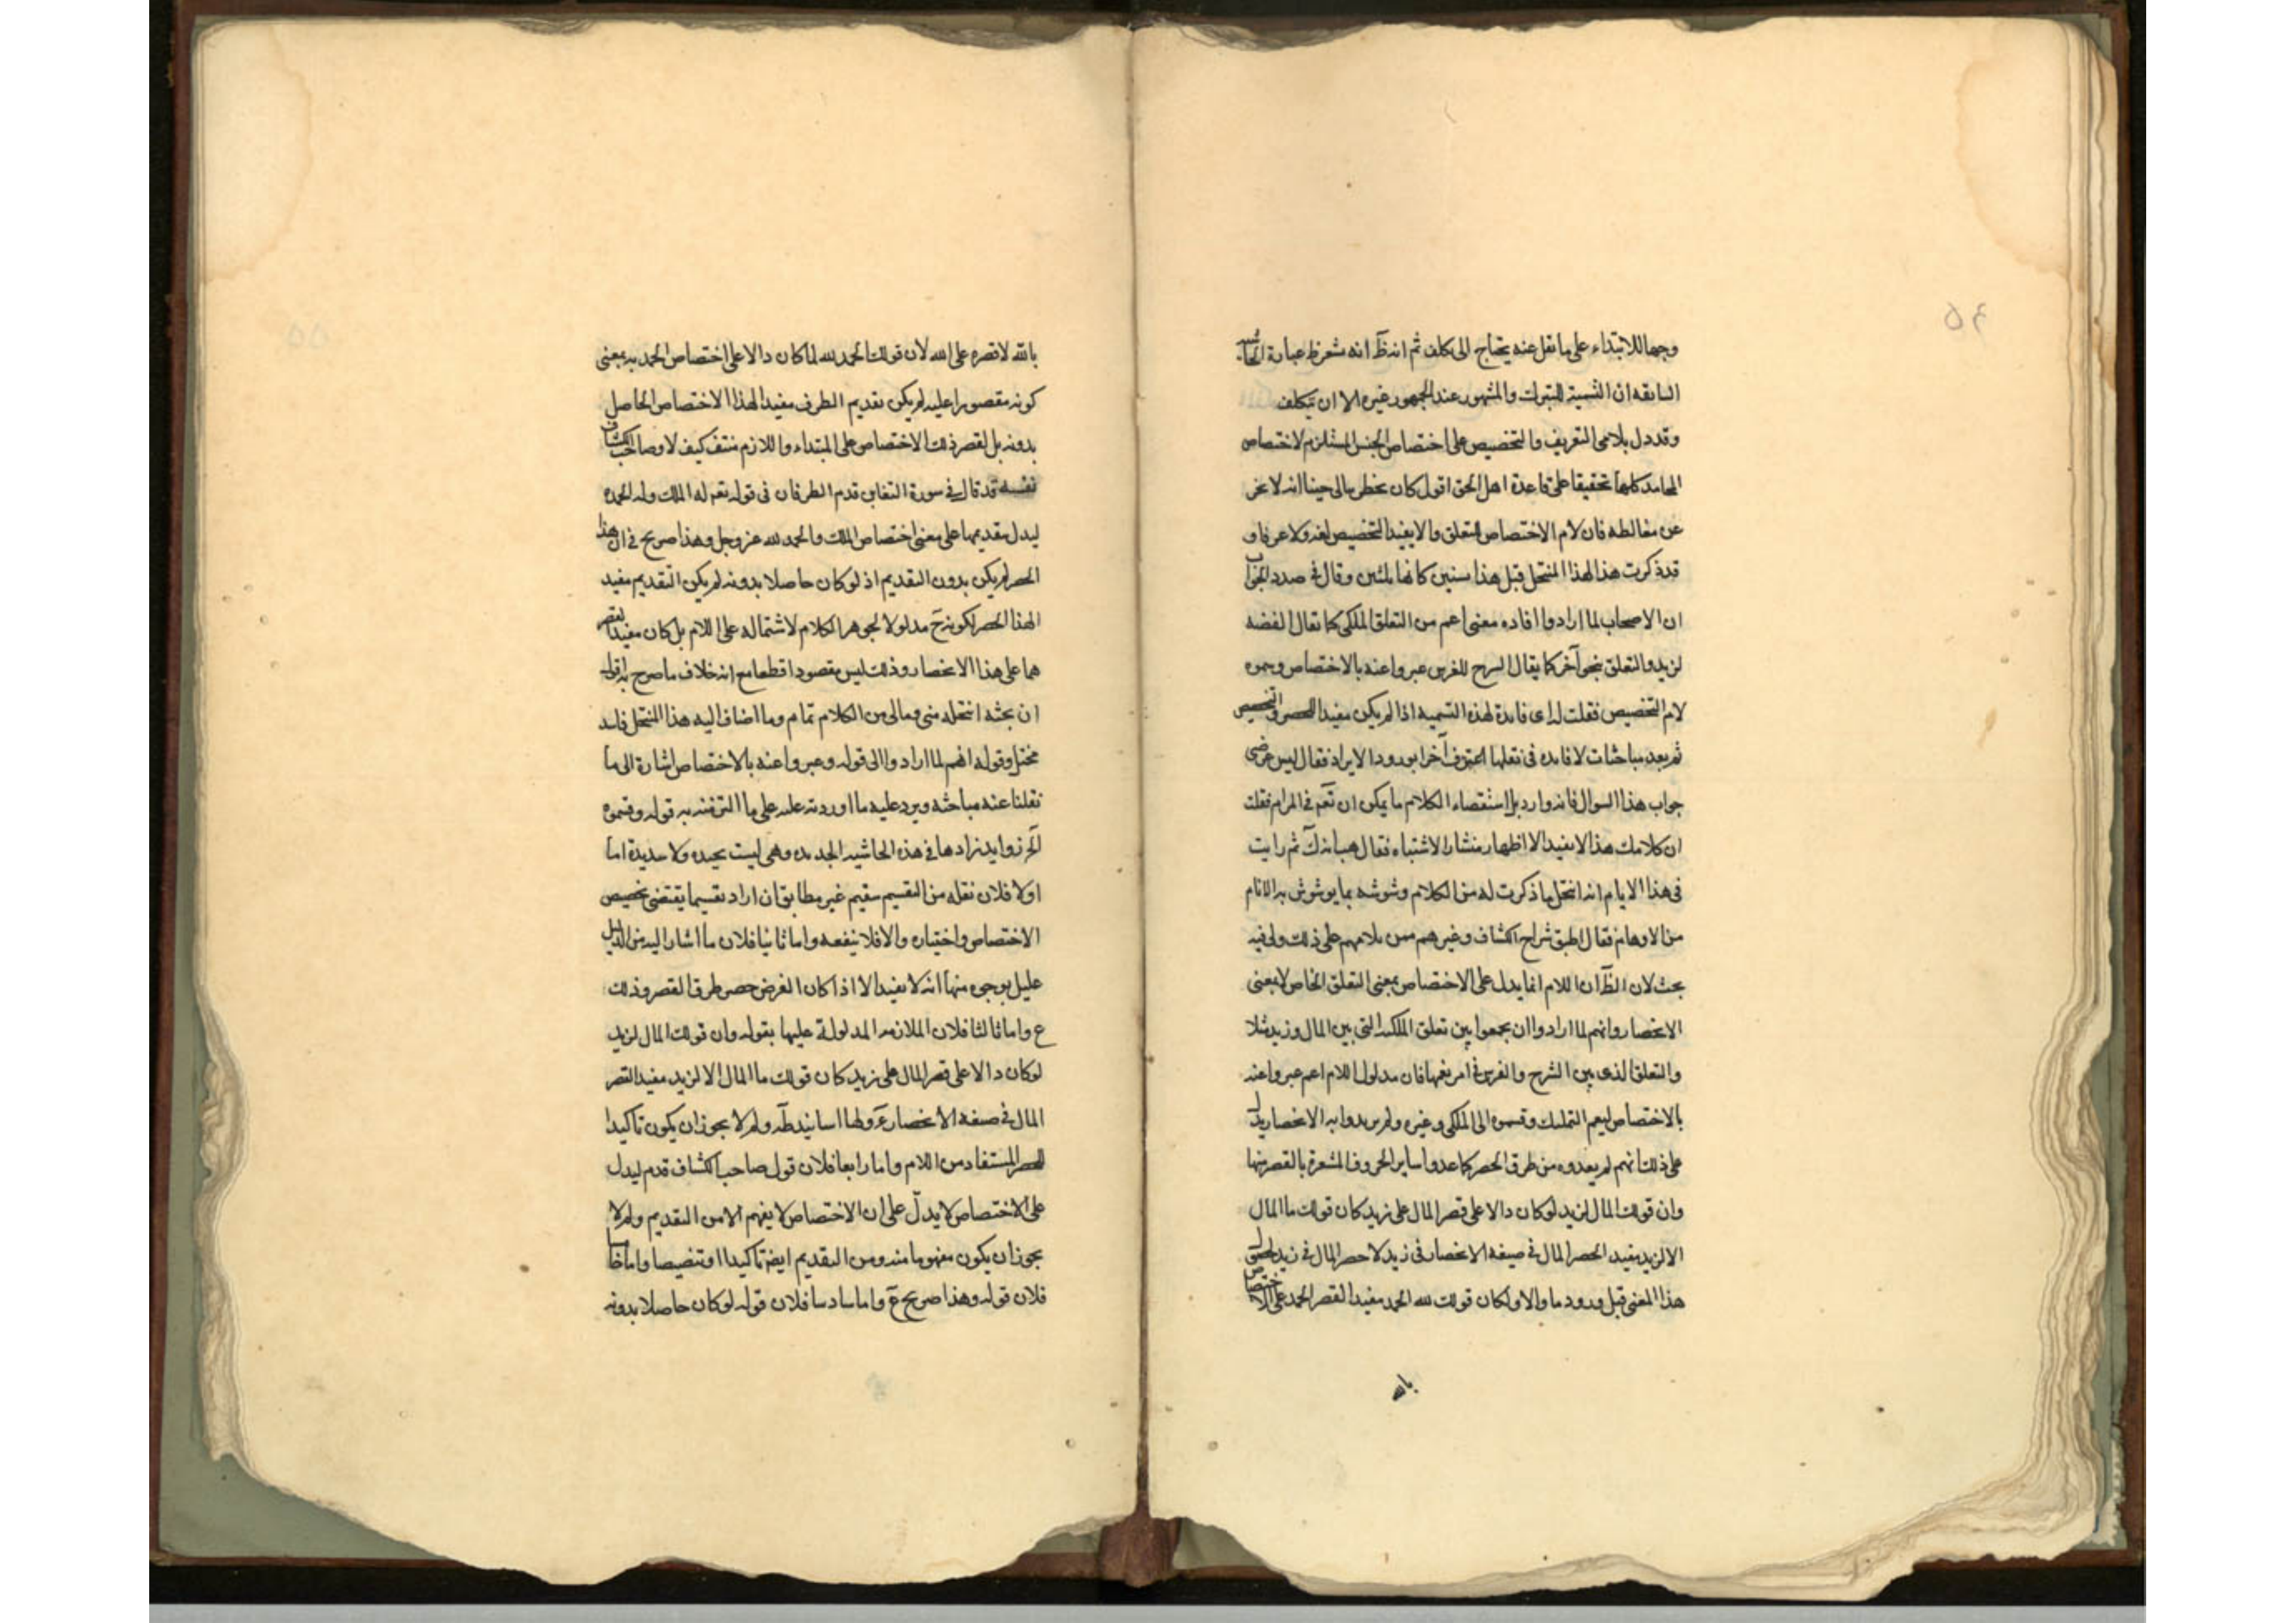 ٥٤
وجها للابتداء على ما نقل عنه يحتاج الى تكلف ثم انه ظ انه شعر عبارة
السابقه ان التسمية للتبرك والمشهور عند الجمهور غيره الا ان يتكلف
وقد دل بلامى التعريف والتخصيص على اختصاص الجنس المستلزم لاختصاص
المحامد كلها تحقيقا على قاعدة اهل الحق اقول كان يخطر ببالى حينا انه لا يخ
عن مغالطه فان لام الاختصاص للتعلق والا يفيد التخصيص لغه ولا عرفا و
قد ذكرت هذا لهذا المنتحل قبل هذا بسنين كانها ثلثين وقال فى صدد الجواب
ان الاصحاب لما ارادوا افاده معنى اعم من التعلق الملكى كما يقال الفضه
لزيد والتعلق بنحو آخر كما يقال السرج للفرس عبروا عنه بالاختصاص وسموه
لام التخصيص فقلت له اى فايدة لهذه التسميه اذا لم يكن مفيدا للحصر والتخصيص
ثم بعد مباحثات لا فايده فى نقلها اعترف آخرا بورود الايراد فقال ليس غرضى
جواب هذا السوال فانه وارد بل استقصاء الكلام ما يمكن ان تعم فى المرام فقلت
ان كلامك هذا لا يفيد الا اظهار منشا الاشتباه فقال حسبنا ذلك ثم رايت
فى هذا الايام انه انتحل ما ذكرت له من الكلام وشوشه بما يوشوش به الانام
من الاوهام فقال اطبق شراح الكشاف وغيرهم من بلامهم على ذلك ولى فيه
بحث لان الظ ان اللام انما يدل على الاختصاص بمعنى التعلق الخاص لا بمعنى
الانحصار وانهم لما ارادوا ان يجمعوا بين تعلق الملكيه التى بين المال وزيد مثلا
والتعلق الذى بين السرج والفرس فى امر يعمها فان مدلول اللام اعم عبروا عنه
بالاختصاص ليعم التمليك وقسموه الى الملكى وغيره ولم يريدوا به الانحصار يدل
على ذلك انهم لم يعدوه من طرق الحصر كما عدوا ساير الحروف المشعرة بالقصر منها
وان قولك المال لزيد لوكان دالا على قصر المال على زيد كان قولك ما المال
الا لزيد مفيد الحصر المال فى صيغه الانحصار فى زيد لا حصر المال فى زيد لحصول
هذا المعنى قبل ورود ما والا ولكان قولك لله الحمد مفيدا لقصر الحمد على الاختصاص
بالله
٥٥
بالله لا قصره على الله لان قولك الحمد لله لما كان دالا على اختصاص الحمد به بمعنى
كونه مقصورا عليه لم يكن تقديم الظرف مفيدا لهذا الاختصاص الحاصل
بدونه بل لقصر ذلك الاختصاص على المبتداء واللازم منتف كيف لا وصاحب الكشاف
نفسه قد قال فى سورة التغابن قدم الظرفان فى قوله تعم له الملك وله الحمد
ليدل بتقديمها على معنى اختصاص الملك والحمد لله عز وجل وهذا صريح فى ان هذا
الحصر لم يكن بدون التقديم اذ لوكان حاصلا بدونه لم يكن التقديم مفيد
الهذا الحصر لكونه ح مدلولا لجوهر الكلام لاشتماله على اللام بل كان مفيدا لقصر
هما على هذا الانحصار وذلك ليس مقصودا قطعا مع انه خلاف ما صرح به اقول
ان بحثه انتحله منى ومالى من الكلام تمام وما اضاف اليه هذا المنتحل فاسد
مختل وقوله انهم لما ارادوا الى قوله وعبروا عنه بالاختصاص اشارة الى ما
نقلنا عنه مباحثه ويرد عليه ما اوردته عليه على ما التزمنه به قوله وقسموه
الخ زوايد زادها فى هذه الحاشيه الجديده وهى ليست بجيده ولا سديدة اما
اولا فلان نقله من التقسيم سقيم غير مطابق ان اراد تقسيما يقتضى تخصيص
الاختصاص واختياره والا فلا ينفعه واما ثانيا فلان ما اشار اليه من الدليل
عليل بوجوه منها انه لا يفيد الا اذا كان الغرض حصر طرق القصر وذلك
ع واما ثالثا فلان الملازمه المدلولة عليها بقوله وان قولك المال لزيد
لوكان دالا على قصر المال على زيد كان قولك ما المال الا لزيد مفيد القصر
المال فى صيغه الانحصار ع ولها اسانيد ظه ولم لا يجوز ان يكون تاكيدا
للحصر المستفاد من اللام واما رابعا فلان قول صاحب الكشاف قدم ليدل
على الاختصاص لا يدل على ان الاختصاص لا يفهم الا من التقديم ولم لا
يجوز ان يكون مفهوما منه ومن التقديم ايضه تاكيدا او تنصيصا واما خامسا
فلان قوله وهذا صريح ع واما سادسا فلان قوله لوكان حاصلا بدونه